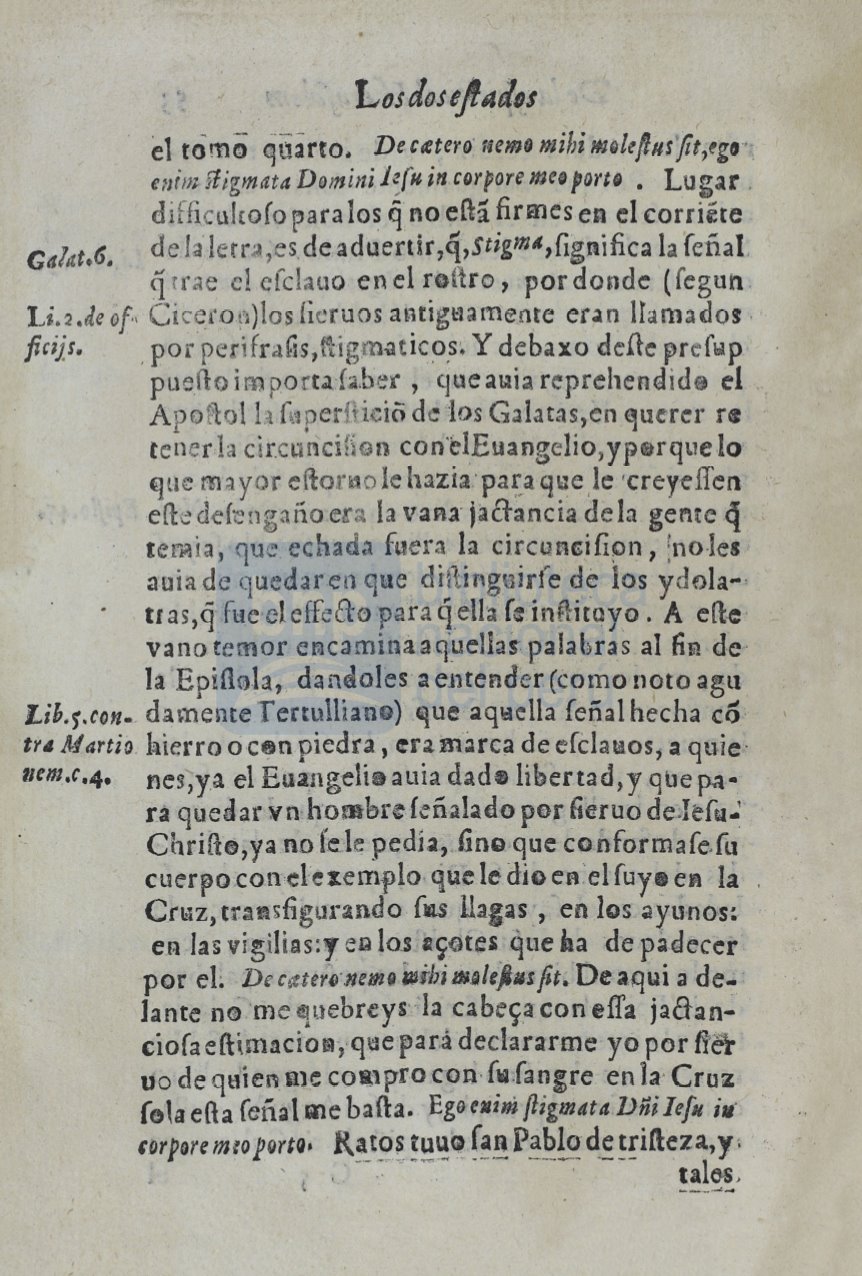 Los dos eſtados
el tomō quarto. De cætero nemo mihi moleſtus ſit, ego
enim ſtigmata Domini Ieſu in corpore meo porto . Lugar
difficultoſo para los q̃ no eſtã firmes en el corriẽte
Galat.6.
de la letra, es de aduertir, q̃, Stigma, ſignifica la ſeñal
q̃ trae el eſclauo en el roſtro, por donde (ſegun
Li.2.de of-
ficijs.
Ciceron) los ſieruos antiguamente eran llamados
por perifraſis, ſtigmaticos. Y debaxo deſte preſup
pueſto importa ſaber , que auia reprehendido el
Apoſtol la ſuperſticiõ de los Galatas, en querer re
tener la circunciſion con el Euangelio, y porque lo
que mayor eſtoruo le hazia para que le creyeſſen
eſte deſengaño era la vana jactancia de la gente q̃
temia, que echada fuera la circunciſion , no les
auia de quedar en que diſtinguirſe de los ydola-
tras, q̃ fue el effecto para q̃ ella ſe inſtituyo. A eſte
vano temor encamina aquellas palabras al fin de
la Epiſtola, dandoles a entender (como noto agu
Lib.5.con-
tra Martio
nem.c.4.
damente Tertulliano) que aquella ſeñal hecha cõ
hierro o con piedra, era marca de eſclauos, a quie
nes, ya el Euangelio auia dado libertad, y que pa-
ra quedar vn hombre ſeñalado por ſieruo de Ieſu-
Chriſto, ya no ſe le pedia, ſino que conformaſe ſu
cuerpo con el exemplo que le dio en el ſuyo en la
Cruz, transfigurando ſus llagas , en los ayunos:
en las vigilias: y en los açotes que ha de padecer
por el. De cætero nemo mihi moleſtus ſit. De aqui a de-
lante no me quebreys la cabeça con eſſa jactan-
cioſa eſtimacion, que para declararme yo por ſier
uo de quien me compro con ſu ſangre en la Cruz
ſola eſta ſeñal me baſta. Ego enim ſtigmata Dñi Ieſu in
corpore meo porto. Ratos tuuo ſan Pablo de triſteza, y
tales